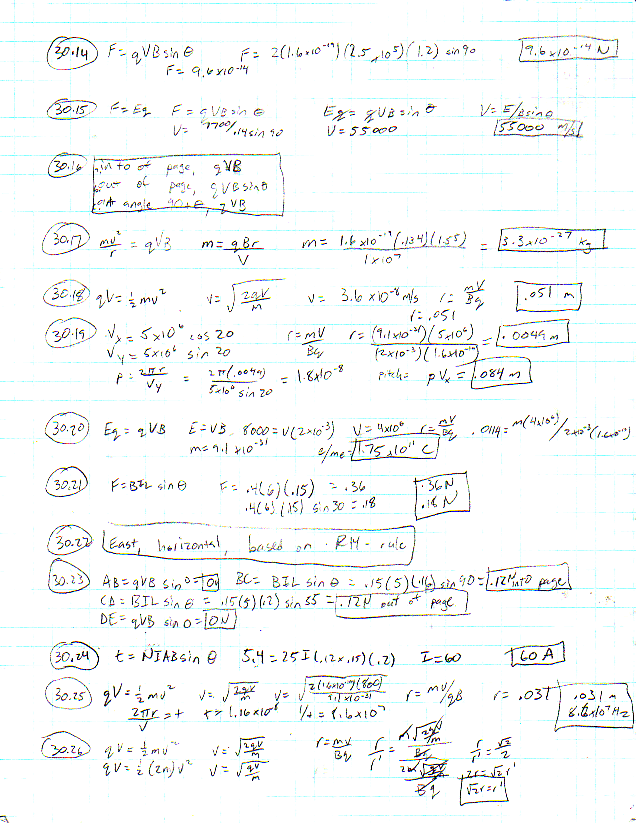 30.14 F = qVB sin θ F = 2(1.6x10^-19)(2.5x10^5)(1.2) sin 90 9.6x10^-14 N
F = 9.6x10^-14
30.15 F = Eq F = qVB sin θ Eq = qVB sin θ V = E/B sin θ
V = 7700/.14 sin 90 V = 55000 55000 m/s
30.16 into of page, qVB
out of page, qVB sin θ
at angle 90+θ, qVB
30.17 mv²/r = qVB m = qBr/V m = 1.6x10^-19(.134)(1.55)/1x10^7 = 3.3x10^-27 kg
30.18 qV = ½mv² V = √(2qV/m) V = 3.6x10^-6 m/s r = mV/Bq .051 m
r = .051
30.19 Vx = 5x10^6 cos 20 r = mV/Bq r = (9.1x10^-31)(5x10^6)/(2x10^-3)(1.6x10^-19) = .0049 m
Vy = 5x10^6 sin 20
P = 2πr/Vy = 2π(.0049)/5x10^6 sin 20 = 1.8x10^-8 pitch = pVx = .084 m
30.20 Eq = qVB E = VB 8000 = V(2x10^-3) V = 4x10^6 r = mV/Bq .0114 = m(4x10^6)/2x10^-3(1.6x10^-19)
m = 9.1x10^-31 e/me = 1.75x10^11 C
30.21 F = BIL sin θ F = .4(6)(.15) = .36 .36 N
.4(6)(.15) sin 30 = .18 .18 N
30.22 East, horizontal, based on RH-rule
30.23 AB = qVB sin 0 = 0N BC = BIL sin θ = .15(5)(.16) sin 90 = .12N into page
CD = BIL sin θ = .15(5)(.2) sin 35 = .12N out of page
DE = qVB sin 0 = 0N
30.24 t = NIAB sin θ 5.4 = 25I(.12x.15)(.2) I = 60 60 A
30.25 qV = ½mv² V = √(2qV/m) V = √(2(1.6x10^-19)(800)/9.1x10^-31) r = mV/qB r = .031 .031 m
2πr/V = t t = 1.16x10^-8 1/t = 8.6x10^7 8.6x10^7 Hz
30.26 qV = ½mv² V = √(2qV/m) r = mV/Bq r/r' = √2/2
qV = ½(2m)v² V = √(qV/m) 2r = √2r'
√2r = r'